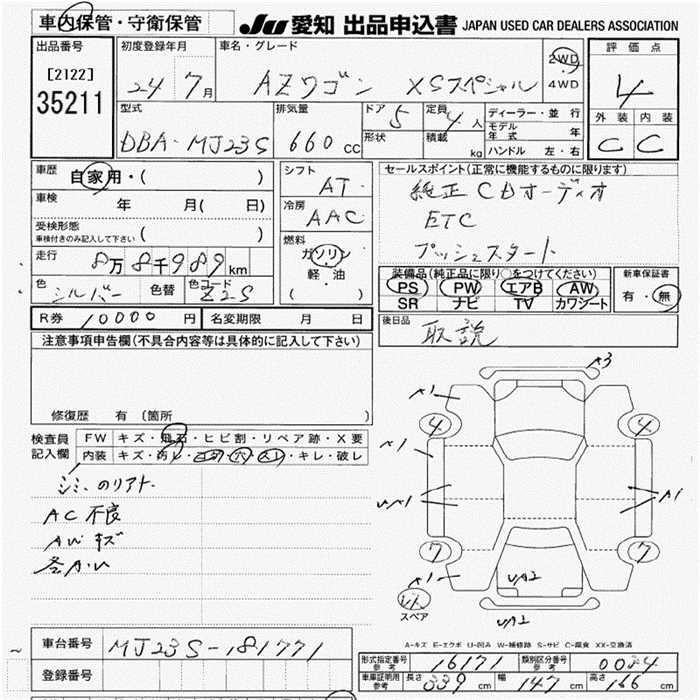 車内保管・守衛保管 JU 愛知 出品申込書 JAPAN USED CAR DEALERS ASSOCIATION
出品番号 初度登録年月 車名・グレード 評価点
[2122] 24 7月 AZワゴン XSスペシャル 2WD 4
35211 4WD
型式 排気量 ドア 5 定員 4人 ディーラー・並行 外装 内装
DBA-MJ23S 660cc 形状 積載 kg モデル年式 年 C C
ハンドル 左・右
車歴 自家用・( ) シフト AT セールスポイント(正常に機能するものに限ります)
車検 年 月( 日) 冷房 AAC 純正CDオーディオ
受検形態 ( ) ETC
車検付きのみ記入して下さい 燃料 プッシュスタート
走行 8万8千989km ガソリン 装備品(純正品に限り○をつけてください) 新車保証書
軽・油 PS PW エアB AW 有・無
色 シルバー 色替 色コード Z2S ( ) SR ナビ TV カワシート
R券 10000円 名変期限 月 日 後日品 取説
注意事項申告欄(不具合内容等は具体的に記入して下さい)
修復歴 有 〔箇所 〕
検査員 FW キズ・飛石・ヒビ割・リペア跡・X要
記入欄 内装 キズ・汚レ・・穴・スレ・キレ・破レ
AC不良
AWキズ
A3
A1
4 4
A1
A1
7 7
A1
UA2
スペア
UA2
A-キズ E-エクボ U-凹み W-補修跡 S-サビ C-腐食 XX-交換済
車台番号 MJ23S-181771 形式指定番号 参考 16171 類別区分番号 参考 0024
登録番号 車庫証明用 参考 長さ 339cm 幅 147cm 高さ 166cm